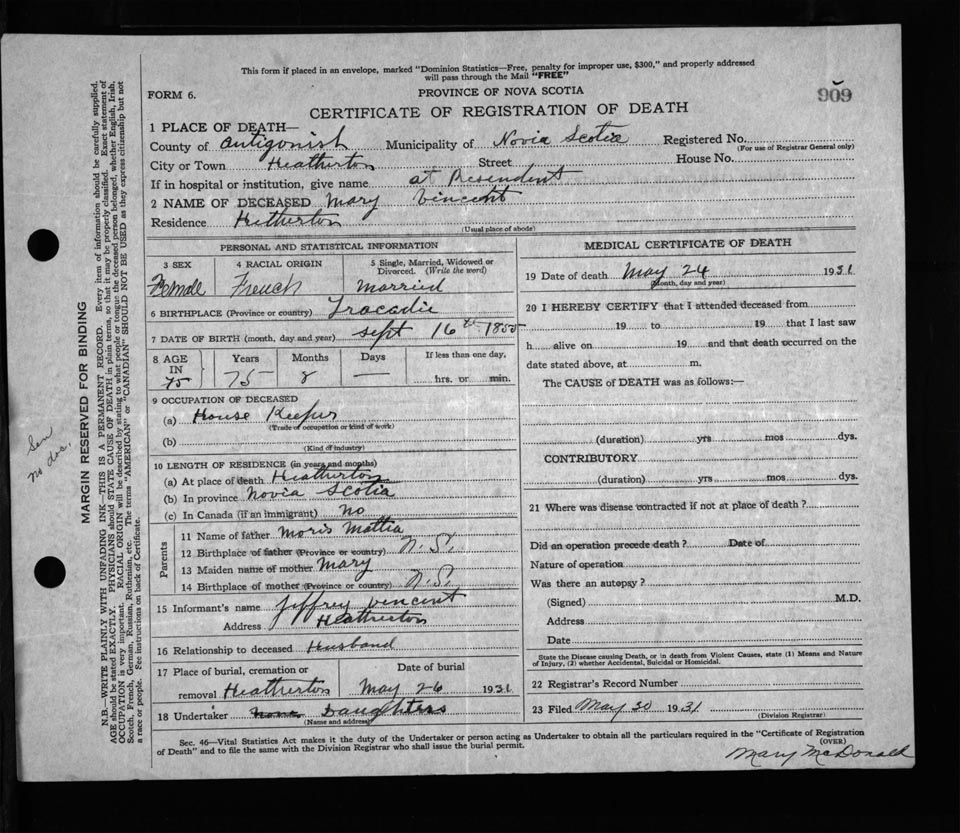 This form if placed in an envelope, marked "Dominion Statistics—Free, penalty for improper use, $300," and properly addressed
will pass through the Mail "FREE"
FORM 6.
PROVINCE OF NOVA SCOTIA
909
CERTIFICATE OF REGISTRATION OF DEATH
1 PLACE OF DEATH—
County of Antigonish Municipality of Novia Scotia Registered No.
(For use of Registrar General only)
City or Town Heatherton Street House No.
If in hospital or institution, give name at Resendent
2 NAME OF DECEASED Mary Vincent
Residence Hetherton
(Usual place of abode)
PERSONAL AND STATISTICAL INFORMATION
3 SEX
Female
4 RACIAL ORIGIN
French
5 Single, Married, Widowed or
Divorced. (Write the word)
Married
6 BIRTHPLACE (Province or country) Tracadie
7 DATE OF BIRTH (month, day and year) Sept 16th 1855
8 AGE
IN
75
Years
75
Months
8
Days
—
If less than one day,
hrs. or min.
9 OCCUPATION OF DECEASED
(a) House Keeper
(Trade of occupation or kind of work)
(b)
(Kind of industry)
10 LENGTH OF RESIDENCE (in years and months)
(a) At place of death Heatherton
(b) In province Novia Scotia
(c) In Canada (if an immigrant) No
Parents
11 Name of father Moris Mattia
12 Birthplace of father (Province or country) N.S.
13 Maiden name of mother Mary
14 Birthplace of mother (Province or country) N.S.
15 Informant's name Jeffrey Vincent
Address Heatherton
16 Relationship to deceased Husband
17 Place of burial, cremation or
removal Heatherton
Date of burial
May 26 1931
18 Undertaker none Daughters
(Name and address)
MEDICAL CERTIFICATE OF DEATH
19 Date of death May 24 1931
(Month, day and year)
20 I HEREBY CERTIFY that I attended deceased from
19 to 19 that I last saw
h alive on 19 and that death occurred on the
date stated above, at m.
The CAUSE of DEATH was as follows:—
(duration) yrs mos dys.
CONTRIBUTORY
(duration) yrs mos dys.
21 Where was disease contracted if not at place of death?
Did an operation precede death? Date of
Nature of operation
Was there an autopsy?
(Signed) M.D.
Address
Date
State the Disease causing Death, or in death from Violent Causes, state (1) Means and Nature
of Injury, (2) whether Accidental, Suicidal or Homicidal.
22 Registrar's Record Number
23 Filed May 30 1931
(Division Registrar)
Sec. 46—Vital Statistics Act makes it the duty of the Undertaker or person acting as Undertaker to obtain all the particulars required in the "Certificate of Registration
of Death" and to file the same with the Division Registrar who shall issue the burial permit.
(OVER)
Mary McDonald
MARGIN RESERVED FOR BINDING
N.B.—WRITE PLAINLY WITH UNFADING INK—THIS IS A PERMANENT RECORD. Every item of information should be carefully supplied.
AGE should be stated EXACTLY. PHYSICIANS should STATE CAUSE OF DEATH in plain terms, so that it may be properly classified. Exact statement of
OCCUPATION is very important. RACIAL ORIGIN will be described by stating to what people or tongue the deceased person belonged, whether English, Irish,
Scotch, French, German, Russian, Ruthenian, etc. The terms "AMERICAN" or "CANADIAN" SHOULD NOT BE USED as they express citizenship but not
a race or people. See instructions on back of Certificate.
Sen
no doc.